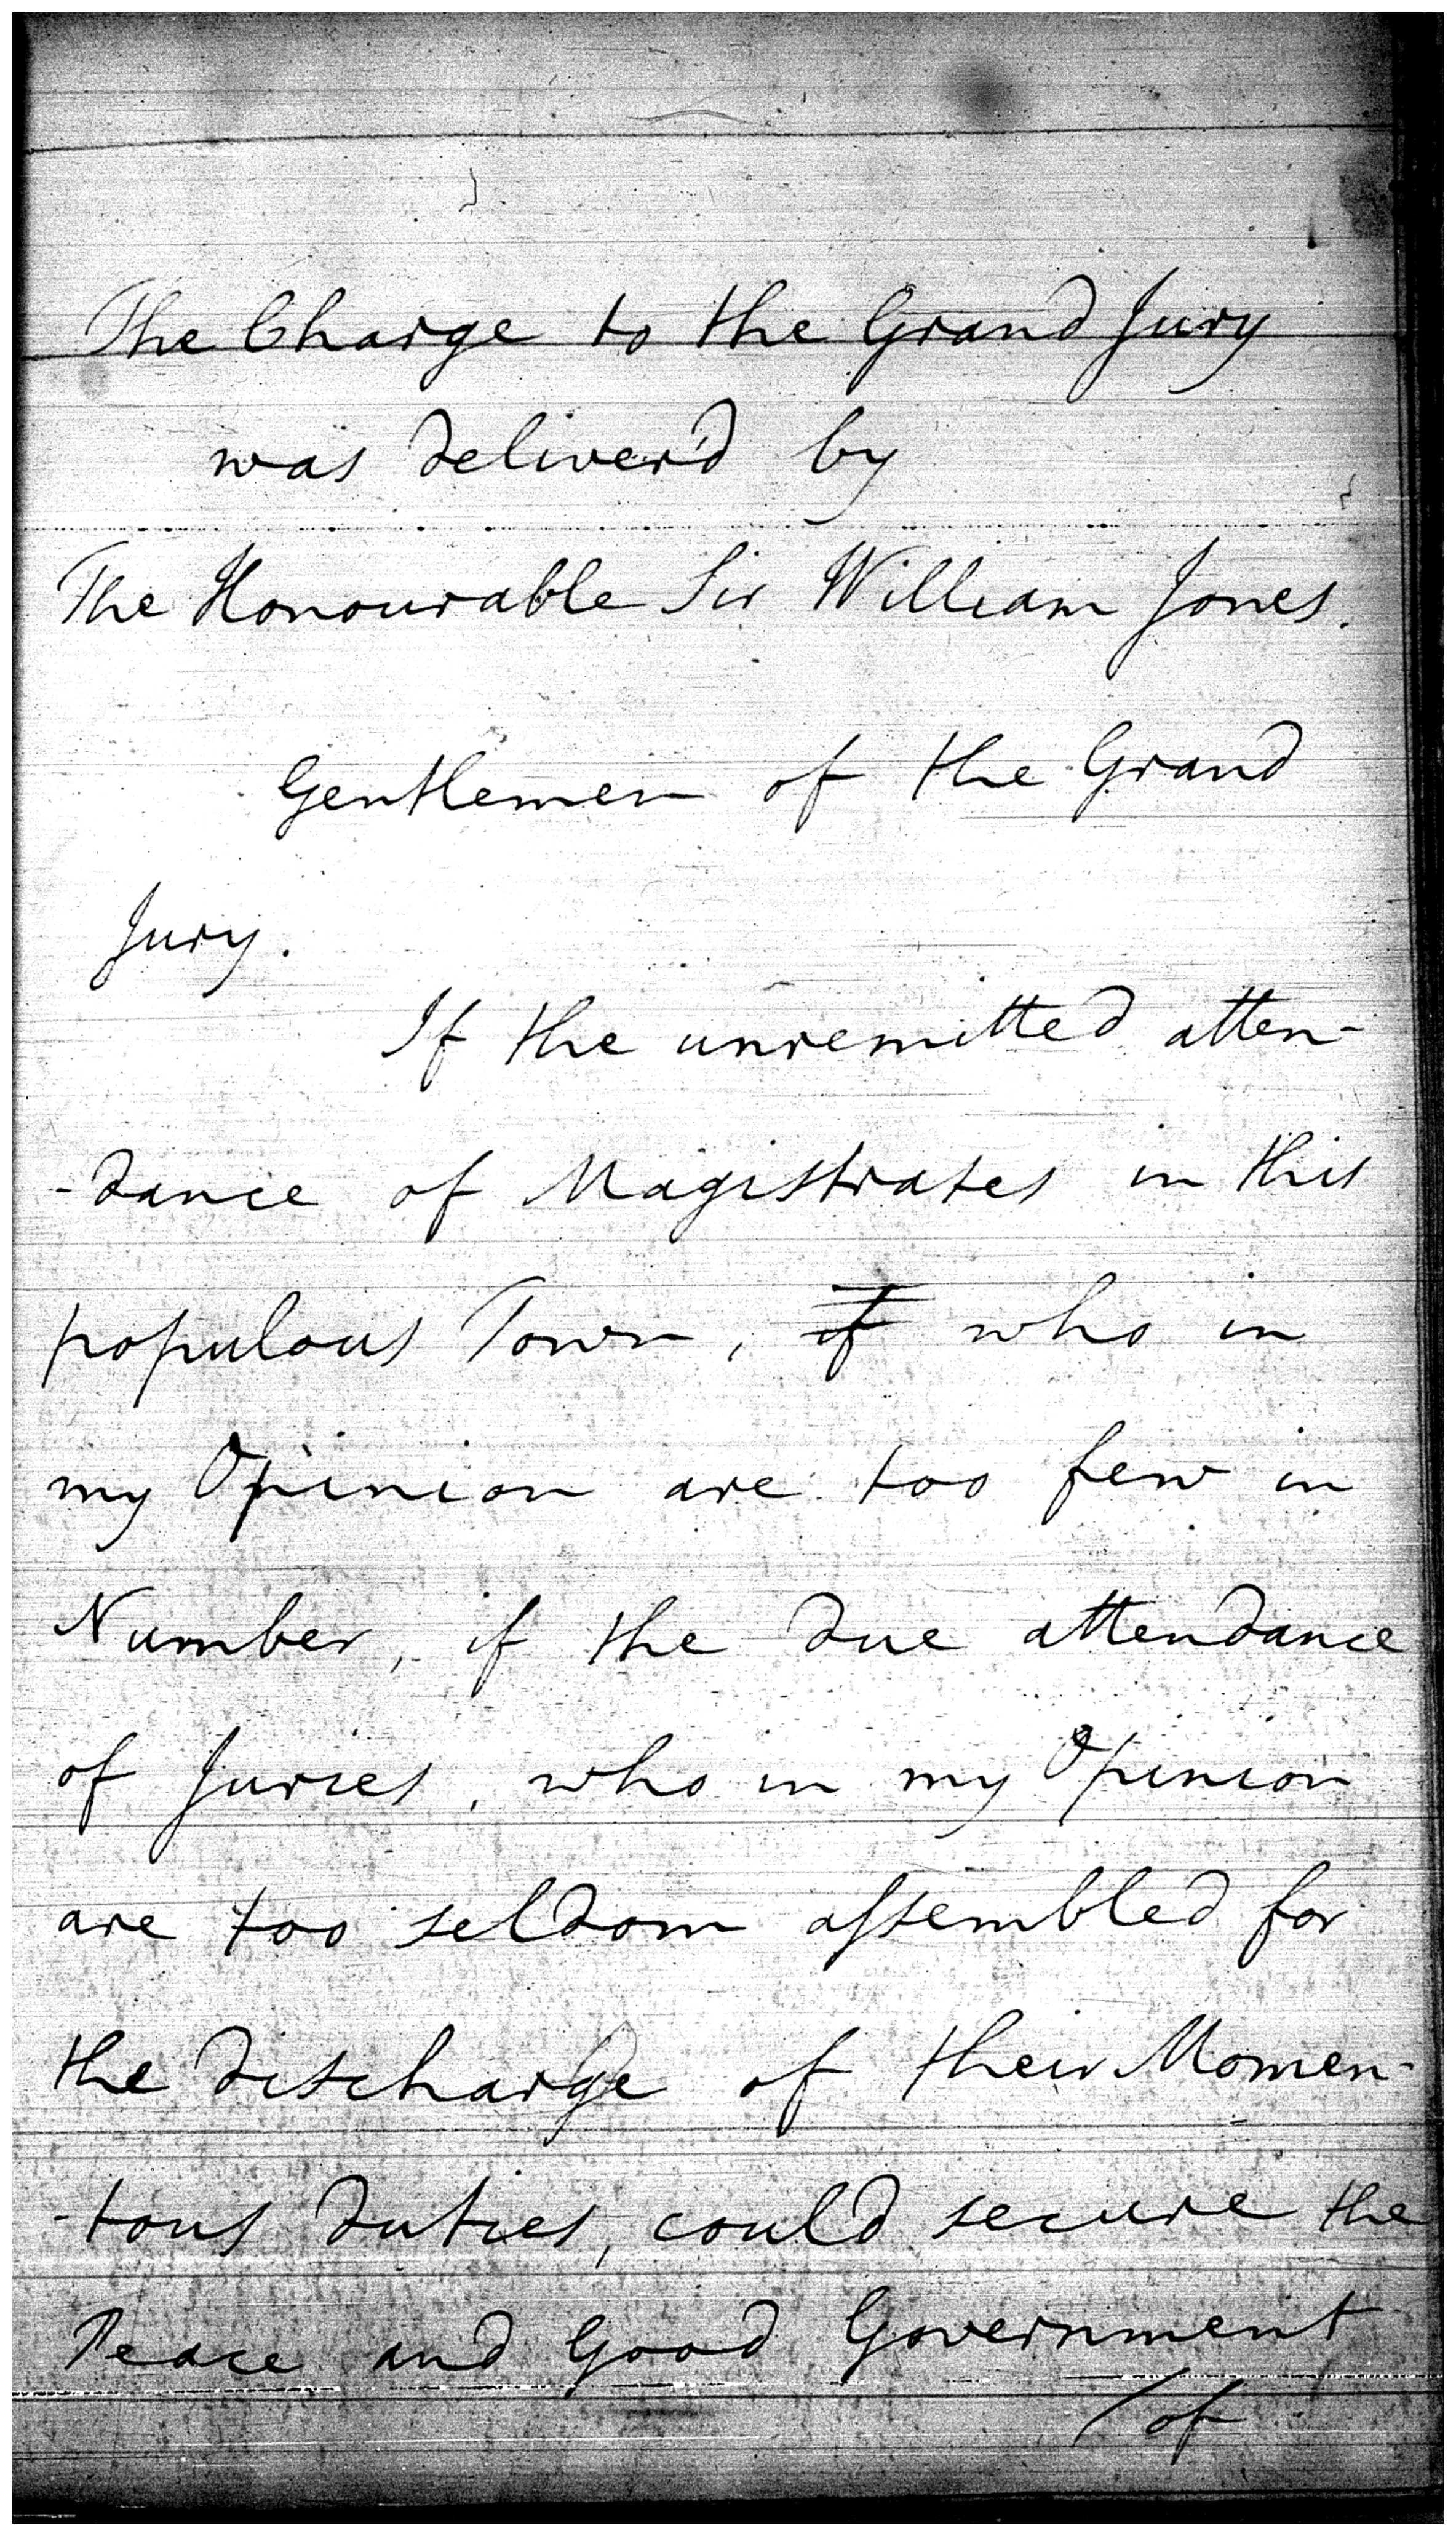 The Charge to the Grand Jury
was deliver'd by
The Honourable Sir William Jones.
Gentlemen of the Grand
Jury.
If the unremitted atten-
-dance of Magistrates in this
populous Town, if who in
my Opinion are too few in
Number, if the due attendance
of Juries, who in my Opinion
are too seldom assembled for
the discharge of their Momen-
-tous duties, could secure the
Peace and Good Government
/of